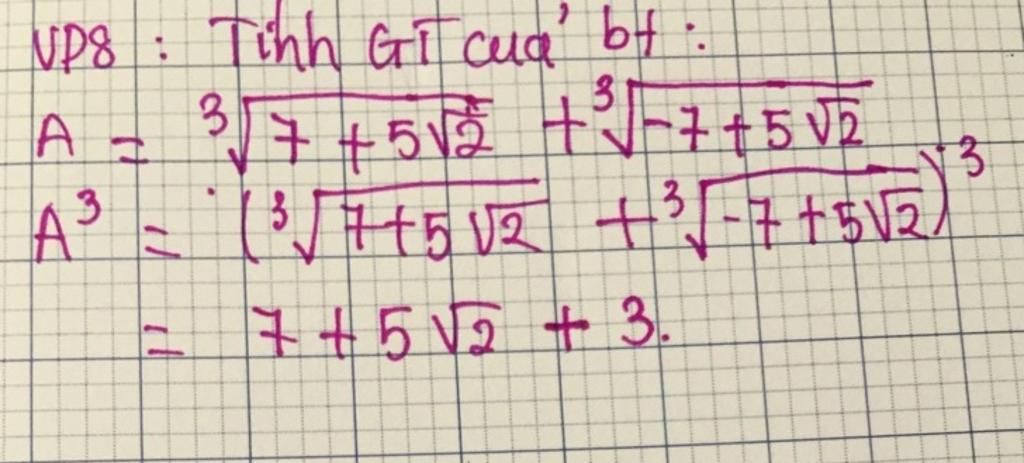 VD8 : Tính GT của bt :
A = ∛(7 + 5√2) + ∛(-7 + 5√2)
A³ = (∛(7+5√2) + ∛(-7+5√2))³
= 7 + 5√2 + 3.